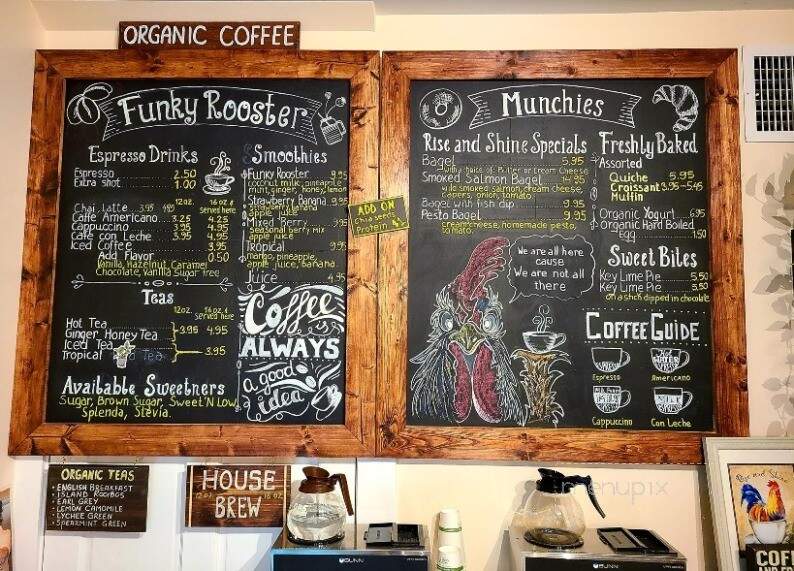 ORGANIC COFFEE
FUNKY ROOSTER
Espresso Drinks
Espresso 2.50
Extra shot 1.00
12oz. 16 oz & served here
Chai Latte 3.95 4.95
Caffe Americano 3.25 4.25
Cappuccino 3.95 4.95
Cafe con Leche 3.95 4.95
Iced Coffee 3.95
Add Flavor 0.50
Vanilla, Hazelnut, Caramel
Chocolate, Vanilla Sugar free
Teas
12oz. 16 oz & served here
Hot Tea
Ginger Honey Tea 3.95 4.95
Iced Tea
Tropical Tea 3.95
Available Sweetners
Sugar, Brown Sugar, Sweet'N Low,
Splenda, Stevia.
Smoothies
Funky Rooster 9.95
coconut milk, pineapple
mint, ginger, honey, lemon
Strawberry Banana 9.95
strawberry, banana
apple juice
Mixed Berry 9.95
seasonal berry mix
apple juice
Tropical 9.95
mango, pineapple,
apple juice, banana
Juice 4.95
Coffee
ALWAYS
a good
idea
ADD ON
Chia seeds
Protein
Munchies
Rise and Shine Specials
Bagel 5.95
with choice of Butter or Cream Cheese
Smoked Salmon Bagel 14.95
wild smoked salmon, cream cheese,
capers, onion, tomato
Bagel with fish dip 9.95
Pesto Bagel 9.95
cream cheese, homemade pesto,
tomato.
We are all here
cause
We are not all
there
Freshly Baked
Assorted
Quiche 5.95
Croissant 3.95-5.45
Muffin
Organic Yogurt 6.95
Organic Hard Boiled
Egg 1.50
Sweet Bites
Key Lime Pie 5.50
Key Lime Pie 5.50
on a stick dipped in chocolate
COFFEE GUIDE
ESPRESSO
Espresso
HOT WATER
ESPRESSO
Americano
MILK FOAM
MILK
ESPRESSO
Cappuccino
MILK
ESPRESSO
Con Leche
ORGANIC TEAS
• ENGLISH BREAKFAST
• ISLAND ROOIBOS
• EARL GREY
• LEMON CAMOMILE
• LYCHEE GREEN
• SPEARMINT GREEN
HOUSE
BREW
BUNN
BUNN
menupix
Rise and Shine
COFFEE